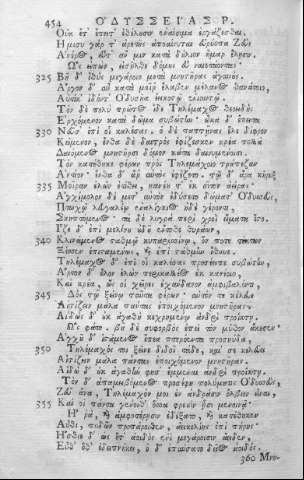 454 ΟΔΥΣΣΕΙΑΣ Ρ.
Οὐκ ἔτ᾽ ἔπειτ᾽ ἐθέλουσιν ἐναίσιμα ἐργάζεσθαι·
Ἥμισυ γάρ τ᾽ ἀρετῆς ἀποαίνυται εὐρύοπα Ζεὺς
Ἀνέρος, εὖτ᾽ ἄν μιν κατὰ δούλιον ἦμαρ ἕλῃσιν.
Ὣς εἰπὼν, εἰσῆλθε δόμους εὖ ναιετάοντας·
325 Βῆ δ᾽ ἰθὺς μεγάροιο μετὰ μνηστῆρας ἀγαυούς.
Ἄργον δ᾽ αὖ κατὰ μοῖρ᾽ ἔλαβεν μέλανος θανάτοιο,
Αὐτίκ᾽ ἰδόντ᾽ Ὀδυσῆα ἐεικοστῷ ἐνιαυτῷ.
Τὸν δὲ πολὺ πρῶτος ἴδε Τηλέμαχος θεοειδὴς
Ἐρχόμενον κατὰ δῶμα συβώτην· ὦκα δ᾽ ἔπειτα
330 Νεῦσ᾽ ἐπὶ οἷ καλέσας· ὁ δὲ παπτήνας ἕλε δίφρον
Κείμενον, ἔνθα δὲ δαιτρὸς ἐφίζεσκεν κρέα πολλὰ
Δαιόμενος μνηστῆρσι δόμον κάτα δαινυμένοισι·
Τὸν κατέθηκε φέρων πρὸς Τηλεμάχοιο τράπεζαν
Ἀντίον· ἔνθα δ᾽ ἄρ αὐτὸς ἐφέζετο· τῷ δ᾽ ἄρα κῆρυξ
335 Μοῖραν ἑλὼν ἐτίθει, κανέου τ᾽ ἐκ σῖτον ἀείρας·
Ἀγχίμολον δὲ μετ᾽ αὐτὸν ἐδύσετο δώματ᾽ Ὀδυσσεὺς,
Πτωχῷ λευγαλέῳ ἐναλίγκιος ἠδὲ γέροντι,
Σκηπτόμενος· τὰ δὲ λυγρὰ περὶ χροῒ εἵματα ἕστο·
Ἷζε δ᾽ ἐπὶ μελίνου οὐδοῦ ἔντοσθε θυράων,
340 Κλινάμενος σταθμῷ κυπαρισσίνῳ, ὅν ποτε τέκτων
Ξέσσεν ἐπισταμένως, καὶ ἐπὶ στάθμην ἴθυνε·
Τηλέμαχος δ᾽ ἐπὶ οἷ καλέσας προσέειπε συβώτην,
Ἄρτον δ᾽ οὖλον ἑλὼν περικαλλέος ἐκ κανέοιο,
Καὶ κρέα, ὥς οἱ χεῖρες ἐχάνδανον ἀμφιβαλόντι,
345 Δὸς τῷ ξείνῳ ταῦτα φέρων· αὐτόν τε κέλευε
Αἰτίζειν μάλα πάντας ἐποιχόμενον μνηστῆρας·
Αἰδὼς δ᾽ οὐκ ἀγαθὴ κεχρημένῳ ἀνδρὶ προΐκτῃ.
Ὣς φάτο· βῆ δὲ συφορβὸς ἐπεὶ τὸν μῦθον ἄκουσεν·
Ἀγχοῦ δ᾽ ἱστάμενος ἔπεα πτερόεντα προσηύδα,
350 Τηλέμαχός τοι ξεῖνε διδοῖ τάδε, καί σε κελεύει
Αἰτίζειν μάλα πάντας ἐποιχόμενον μνηστῆρας·
Αἰδῶ δ᾽ οὐκ ἀγαθήν φησ᾽ ἔμμεναι ἀνδρὶ προΐκτῃ.
Τὸν δ᾽ ἀπαμειβόμενος προσέφη πολύμητις Ὀδυσσεὺς,
Ζεῦ ἄνα, Τηλέμαχόν μοι ἐν ἀνδράσιν ὄλβιον εἶναι,
355 Καί οἱ πάντα γένοιθ᾽ ὅσσα φρεσὶν ᾗσι μενοινᾷ·
Ἦ ῥα, καὶ ἀμφοτέρῃσιν ἐδέξατο, καὶ κατέθηκεν
Αὖθι, ποδῶν προπάροιθεν, ἀεικελίης ἐπὶ πήρης·
Ἤσθιε δ᾽ ὡς ὅτ᾽ ἀοιδὸς ἐνὶ μεγάροισιν ἄειδεν,
Εὖθ᾽ ὁ δεδειπνήκει, ὁ δ᾽ ἐπαύσατο θεῖος ἀοιδός·
360 Μνη-